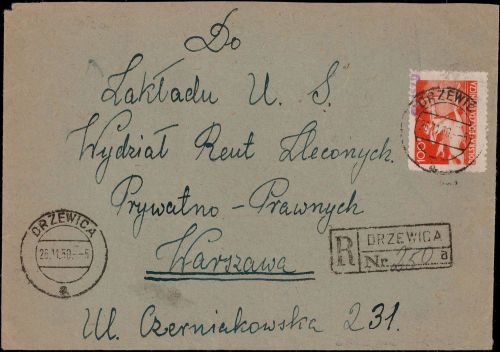 Do
Zakładu U. S.
Wydział Rent Zleconych.
Prywatno - Prawnych
Warszawa
Ul. Czerniakowska 231.
DRZEWICA
28.11.50.-5
a
DRZEWIC
a
R
DRZEWICA
Nr. 250 a